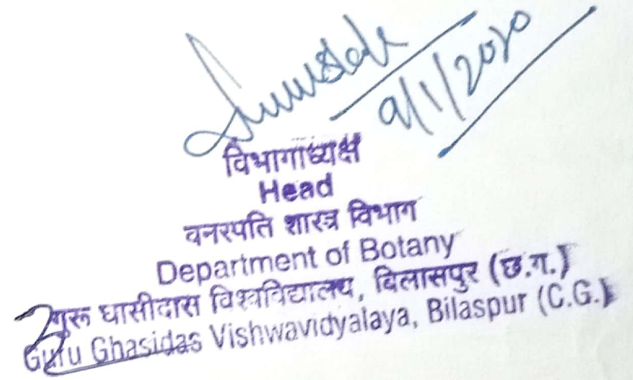 9/1/2020
विभागाध्यक्ष
Head
वनस्पति शास्त्र विभाग
Department of Botany
गुरू घासीदास विश्वविद्यालय, बिलासपुर (छ.ग.)
Guru Ghasidas Vishwavidyalaya, Bilaspur (C.G.)